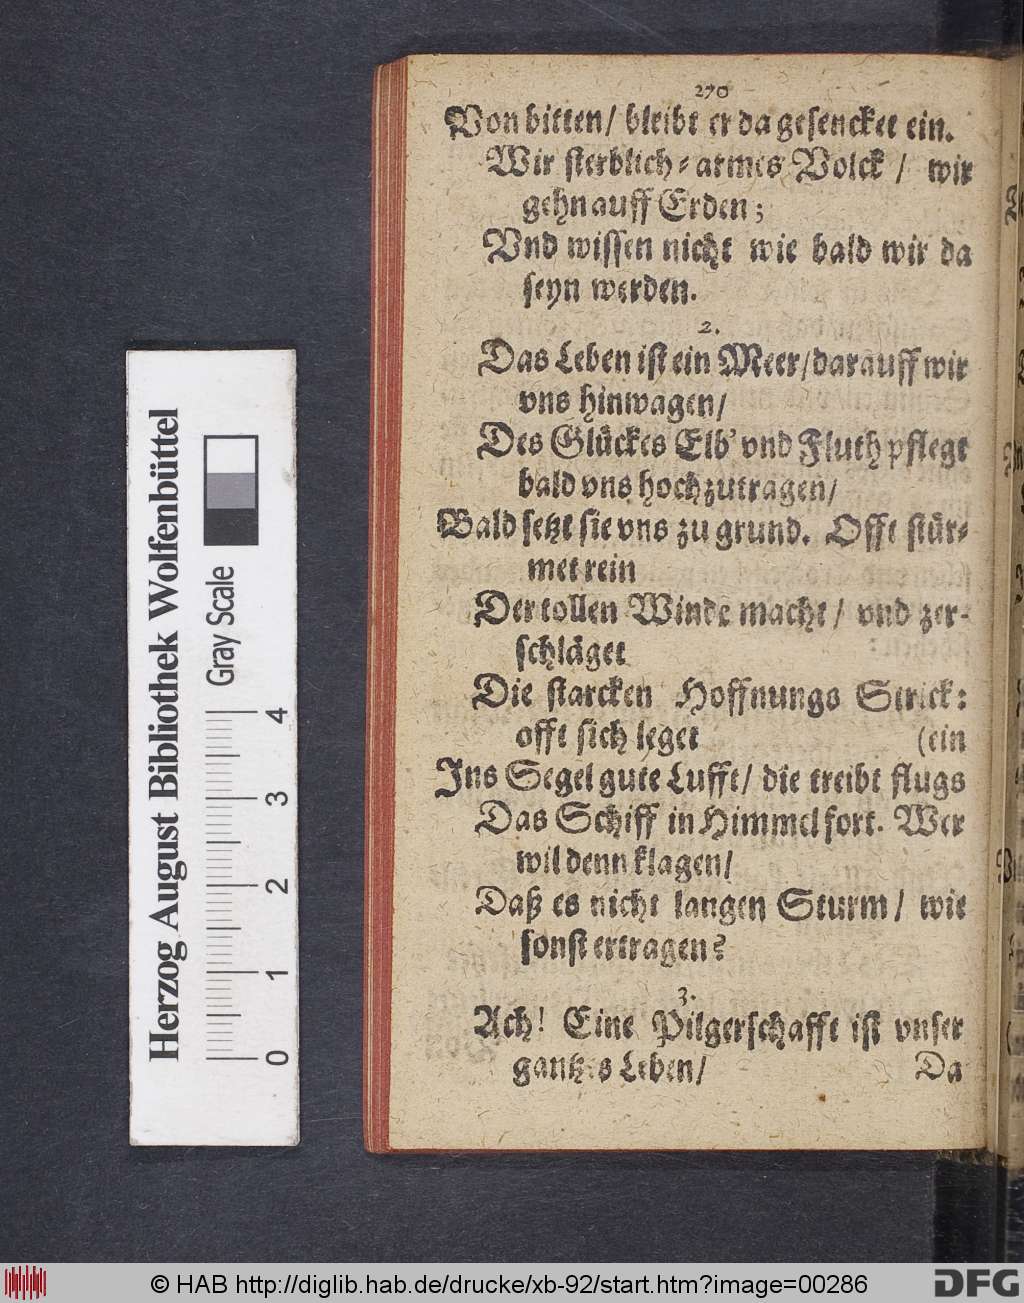 270
Von bitten/ bleibt er da gesencket ein.
Wir sterblich-armes Volck / wir
gehn auff Erden;
Vnd wissen nicht wie bald wir da
seyn werden.
2.
Das Leben ist ein Meer/darauff wir
vns hinwagen/
Des Glückes Elb' vnd Fluth pflegt
bald vns hochzutragen/
Bald setzt sie vns zu grund. Offt stür-
met rein
Der tollen Winde macht/ vnd zer-
schläget
Die starcken Hoffnungs Strick:
offt sich leget (ein
Ins Segel gute Lufft/ die treibt flugs
Das Schiff in Himmel fort. Wer
wil denn klagen/
Daß es nicht langen Sturm/ wie
sonst ertragen?
3.
Ach! Eine Pilgerschafft ist vnser
gantzes Leben/ Da
Herzog August Bibliothek Wolfenbüttel
Gray Scale
0 1 2 3 4
© HAB http://diglib.hab.de/drucke/xb-92/start.htm?image=00286
DFG